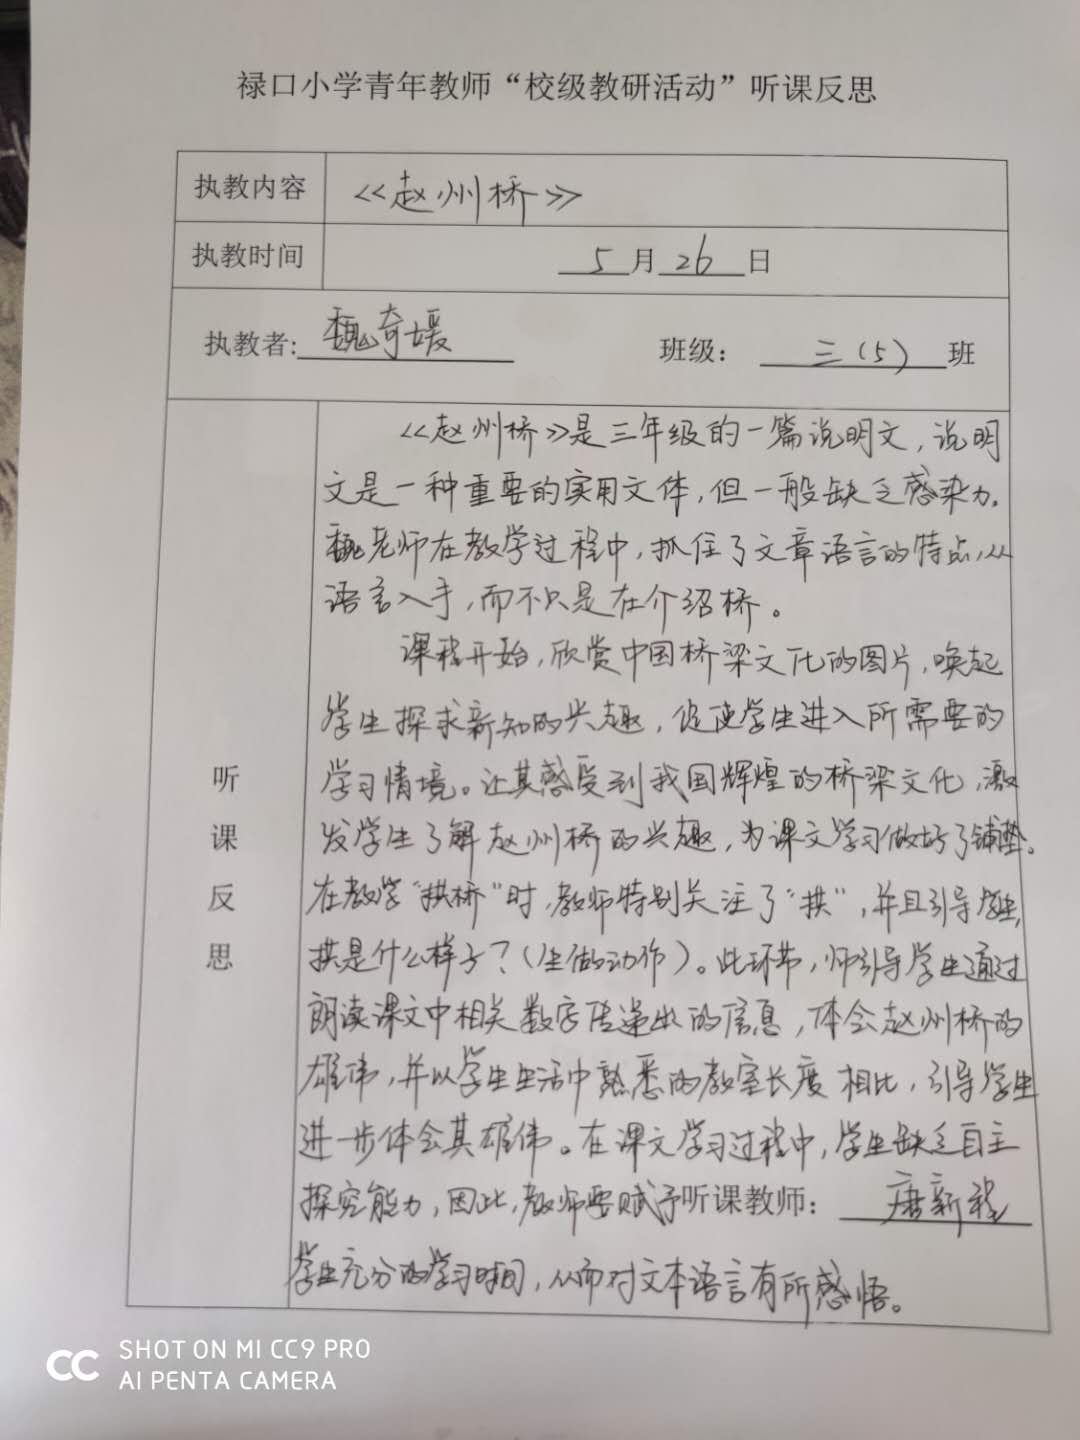 禄口小学青年教师“校级教研活动”听课反思
执教内容 《赵州桥》
执教时间 5月26日
执教者:魏奇媛 班级：三(5)班
听课反思
《赵州桥》是三年级的一篇说明文，说明
文是一种重要的实用文体，但一般缺乏感染力。
魏老师在教学过程中，抓住了文章语言的特点，从
语言入手，而不只是在介绍桥。
课程开始，欣赏中国桥梁文化的图片，唤起
学生探求新知的兴趣，促使学生进入所需要的
学习情境。让其感受到我国辉煌的桥梁文化，激
发学生了解赵州桥的兴趣，为课文学习做好了铺垫。
在教学“拱桥”时，教师特别关注了“拱”，并且引导学生，
拱是什么样子？（生做动作）。此环节，师引导学生通过
朗读课文中相关数字传递出的信息，体会赵州桥的
雄伟，并以学生生活中熟悉的教室长度相比，引导学生
进一步体会其雄伟。在课文学习过程中，学生缺乏自主
探究能力，因此，教师要赋予听课教师：唐新程
学生充分的学习时间，从而对文本语言有所感悟。
SHOT ON MI CC9 PRO
AI PENTA CAMERA